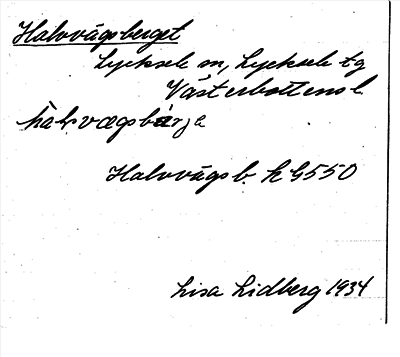 Halvvägsberget
Lycksele sn, Lycksele tg
Västerbottens l.
hal̀vvægsbær̀ja
Halvvägsb. k G550
Lisa Lidberg 1934